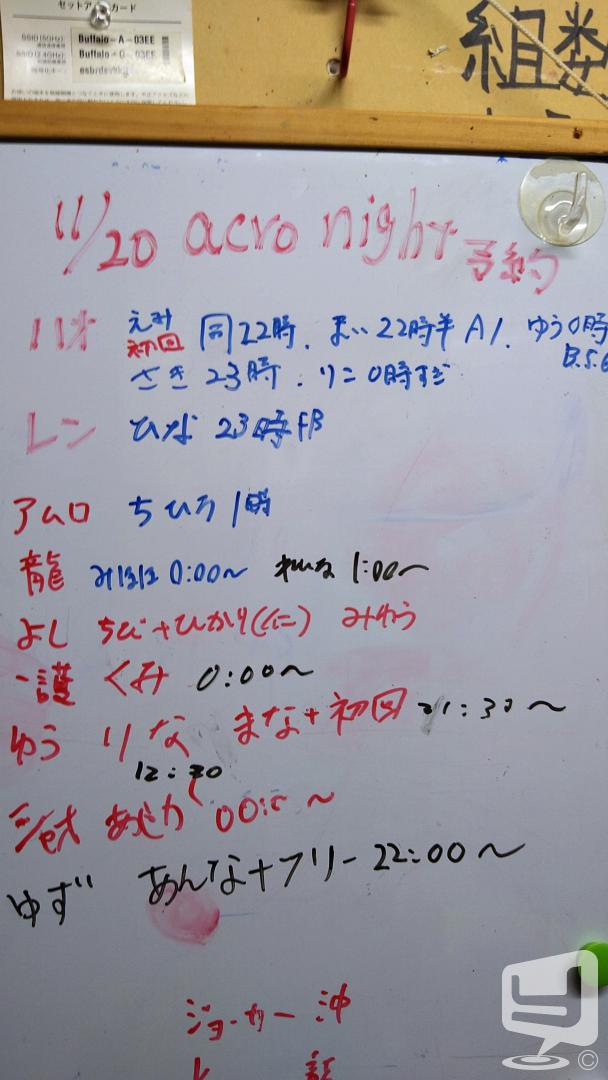 セットアップカード
Buffalo-A-03EE
Buffalo-G-03EE
組数
11/20 acro night 予約
ハオ えみ 初回 同22時. まい 22時半 A1. ゆう0時
さき 23時. りこ 0時すぎ
レン ひな 23時
アムロ ちひろ 1時
龍 みほほ 0:00〜 れいな 1:00〜
よし ちび+ひかり みゆう
一護 くみ 0:00〜
ゆう りな まな+初回 21:30〜
12:30
あじか
ゆず あんな+フリー 22:00〜
ジョーカー 沖